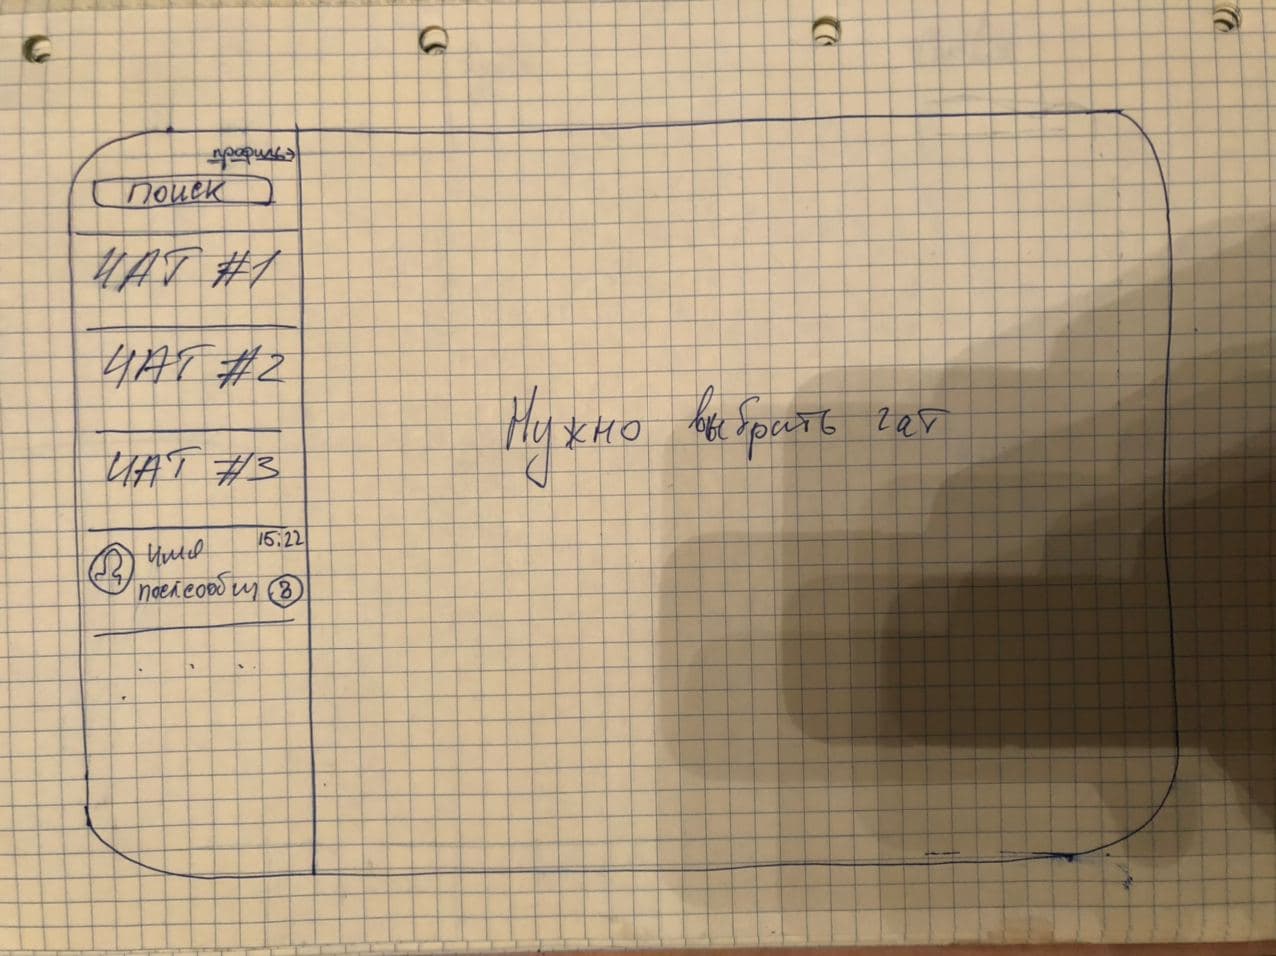 профиль >
поиск
ЧАТ #1
ЧАТ #2
ЧАТ #3
имя 15:22
посл сообщ 3
Нужно выбрать чат